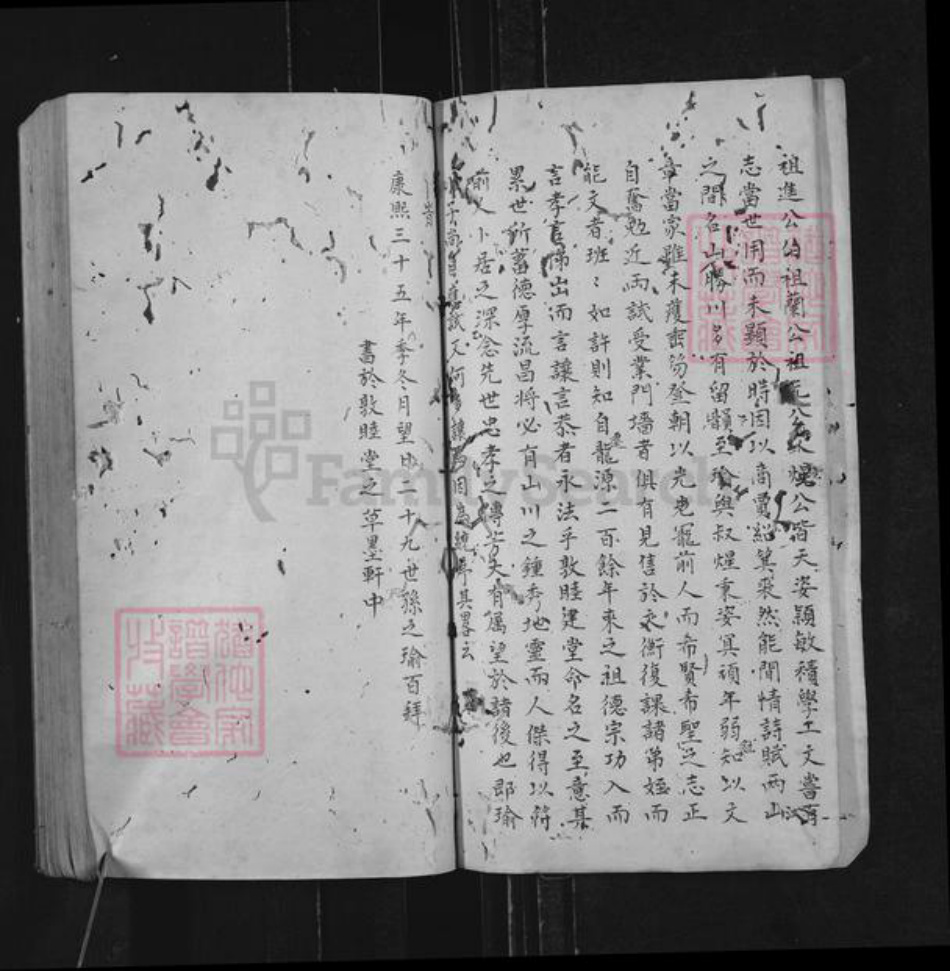 祖進公伯祖蘭公祖公公皆天姿穎敏積學工文嘗有
志當世用而未顯於時因以商賈紹箕裘然能閒情詩賦兩山
之間名山勝川多有留韻至瑜與叔煌秉姿冥頑年弱知以文
章當家雖未獲登朝以光寵前人而希賢希聖之志正
自奮勉近兩試受業門墻者俱有見售於文衡復課諸弟姪而
能文者班〻如許則知自龍源二百餘年來之祖德宗功入而
言孝言悌出而言讓言恭者永法乎敦睦建堂命名之至意其
累世所蓄德厚流昌將必有山川之鍾秀地靈而人傑得以符
前人卜居之深念先世忠孝之傳者大有屬望於諸後也即瑜
試又何多讓焉因為統序其畧云
旹
康熙三十五年季冬月望日二十九世孫之瑜百拜
書於敦睦堂之草墨軒中
FamilySearch